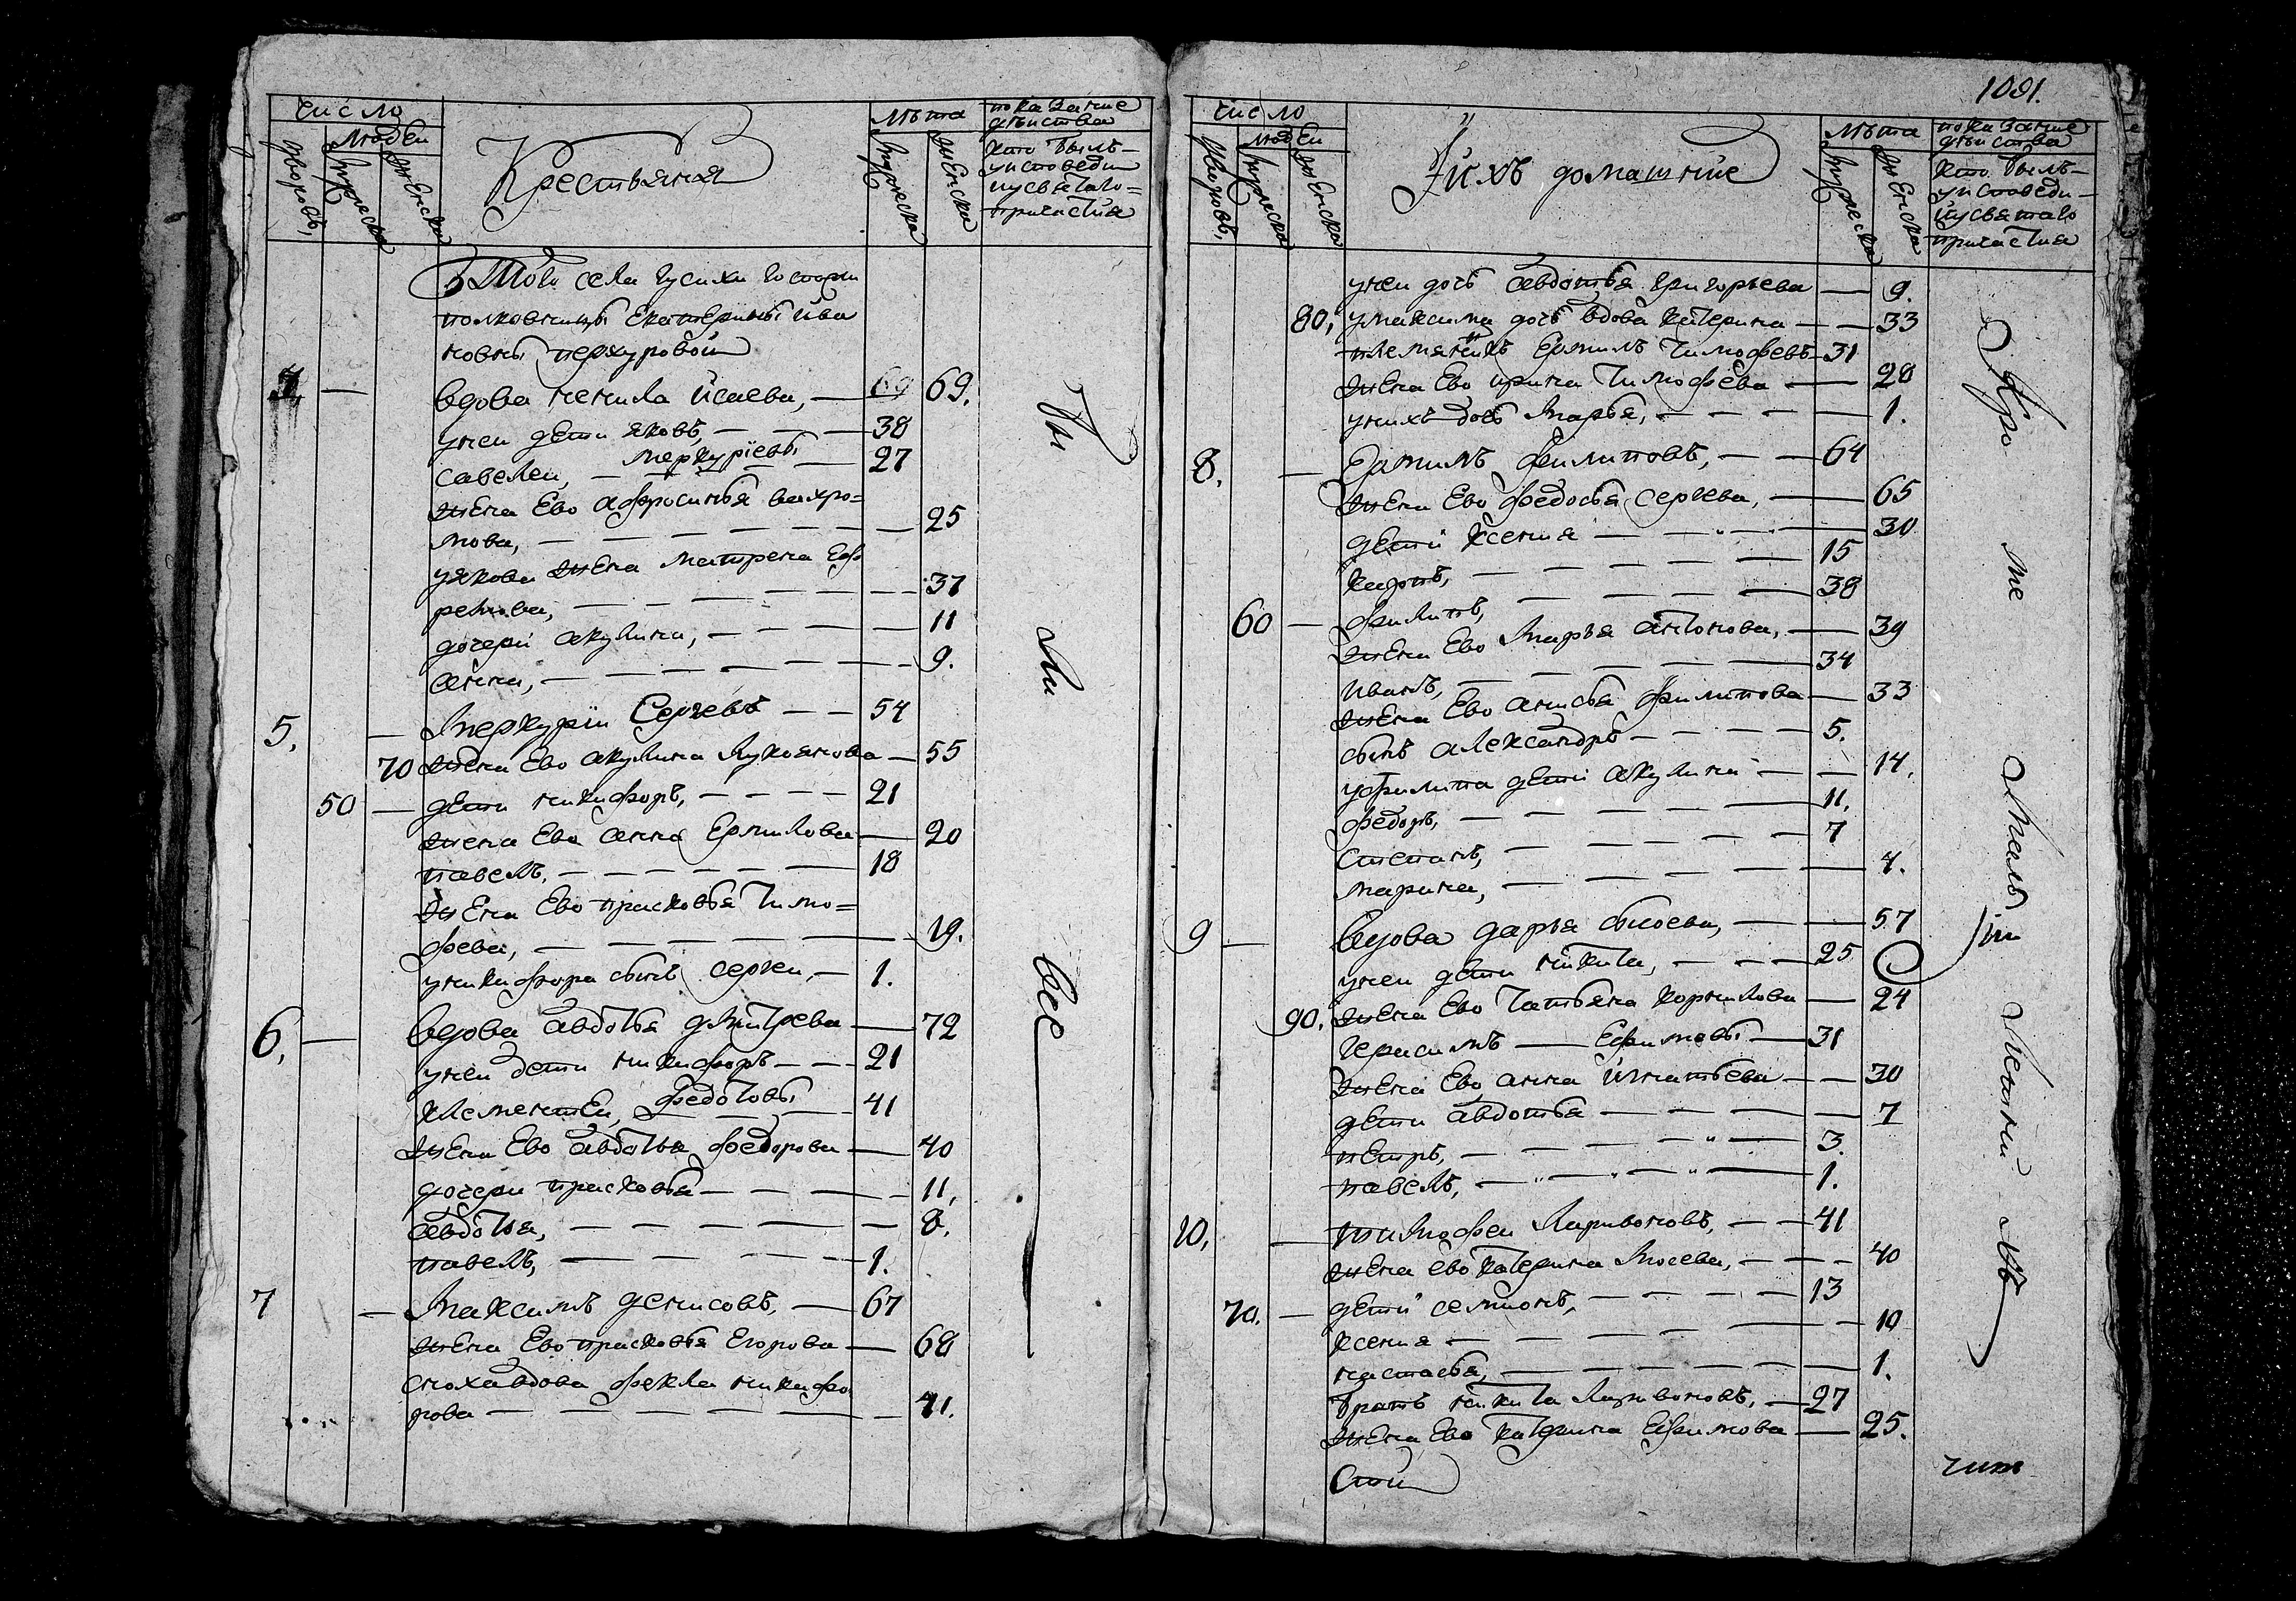 число
людей
дворовъ,
мужеска
женска
Крестьяня
лѣта
мужеска
женска
показание
действа
кто былъ
у исповеди
и у святаго
причастия
Того села Гусихи Госпожи
полковницы Екатерины Ива
новны
вдова ненила Исаева, — 69.
у неи дети яковъ, — 38
савелеи, — меркуриевы — 27
жена Ево афросинья вахро=
мова, — 25
у якова жена матрена Еф
ремова, — 37
дочери акулина, — 11
анна, — 9.
5. — меркурiи Сергеевъ — 54
70 жена Ево акулина Лукоянова — 55
50 — дети никифоръ, — 21
жена Ево анна Ермилова — 20
павелъ, — 18
жена Ево прасковья Тимо=
феева, — 19.
у никифора сынъ сергеи, — 1.
6, — вдова авдотья дмитрева — 72
у неи дети никифоръ — 21
клементеи, федотовы — 41
жена Ево авдотья федорова — 40
дочери прасковья — 11,
авдотья, — 8.
павелъ, — 1.
7 — Максимъ денисовъ, — 67
жена Ево прасковья Егорова — 68
сноха вдова фекла никифо
рова — 41.
бы
ли
все
1091.
число
людей
дворовъ,
мужеска
женска
И ихъ домашние
лѣта
мужеска
женска
показание
действа
кто былъ
у исповеди
и у святаго
причастия
у неи дочь авдотья григорьева — 9.
80, у максима дочь вдова катерина — 33
племяникъ Ермилъ Тимофеевъ — 31
жена Ево ирина Тимофеева — 28
у нихъ дочь Марья, — 1.
8, — Ермилъ филиповъ, — 64
жена Ево федосья Сергеева, — 65
дети ксения — 30
карпъ, — 15
60 — филипъ, — 38
жена Ево Марья антонова, — 39
иванъ, — 34
жена Ево анисья филипова — 33
сынъ александръ — 5.
у филипа дети акулина — 14.
федоръ, — 11.
степанъ, — 7
марина, — 4.
9 — вдова дарья сысоева, — 57
у неи дети никита, — 25
90, жена Ево Татьяна корнилова — 24
герасимъ — Ефимовы — 31
жена Ево анна Игнатьева — 30
дети авдотья — 7
петръ, — 3.
павелъ, — 1.
10, — тимофеи Ларивоновъ, — 41
жена ево катерина Мосеева, — 40
70. — дети семионъ, — 13
ксения — 10
настасья, — 1.
братъ никита Ларивоновъ, — 27
жена Ево катерина Ефимова — 25.
Кро
ме
малы
ми
летни
мъ